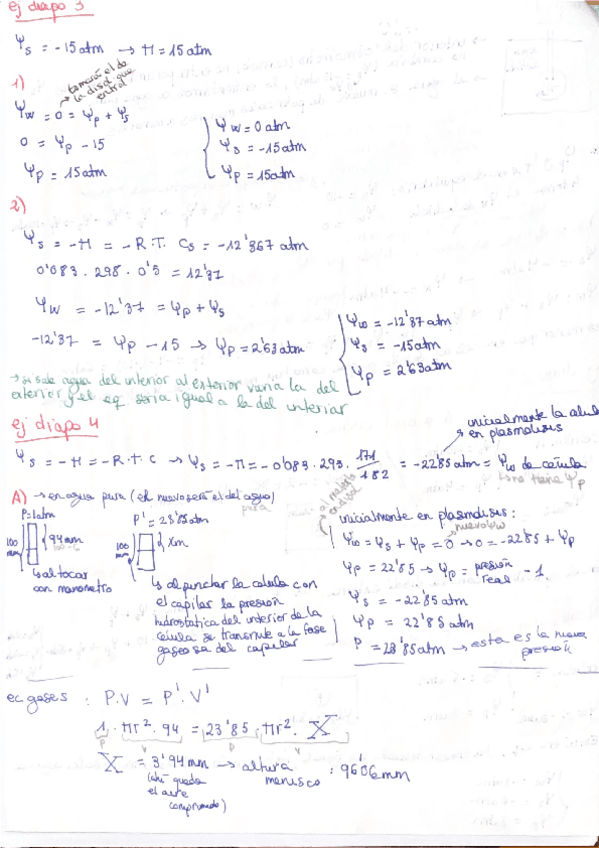 ej diapo 3
Ψs = -15 atm → π = 15 atm
1)
→ tomará el de la disol que entra
Ψw = 0 = Ψp + Ψs
0 = Ψp - 15
Ψp = 15 atm
Ψw = 0 atm
Ψs = -15 atm
Ψp = 15 atm
2)
Ψs = -π = -R·T· Cs = -12'367 atm
0'083 . 298 . 0'5 = 12'37
Ψw = -12'37 = Ψp + Ψs
-12'37 = Ψp - 15 → Ψp = 2'63 atm
Ψw = -12'37 atm
Ψs = -15 atm
Ψp = 2'63 atm
→ si sale agua del interior al exterior varía la del
exterior y el eq sería igual a la del interior
ej diapo 4
inicialmente la celula
en plasmolisis
Ψs = -π = -R·T·C → Ψs = -π = -0'083 . 293 . 171/182 = -22'85 atm = Ψw de celula
no tiene Ψp
A) → en agua pura (el nuevo será el del agua)
pura
P = 1 atm
100 mm
94 mm
↳ al tocar
con manometro
P' = 23'85 atm
100 mm
Xm
↳ al pinchar la celula con
el capilar la presión
hidrostatica del interior de la
celula se transmite a la fase
gaseosa del capilar
inicialmente en plasmolisis:
nuevo Ψw
Ψw = Ψs + Ψp = 0 → 0 = -22'85 + Ψp
Ψp = 22'85 → Ψp = presión real - 1
Ψs = -22'85 atm
Ψp = 22'85 atm
P = 23'85 atm → esta es la nueva
presión
ec gases : P.V = P'.V'
1 . πr² . 94 = 23'85 . πr² . X
P V P V
X = 3'94 mm → altura menisco : 96'06 mm
(ahí queda
el aire
comprimido)